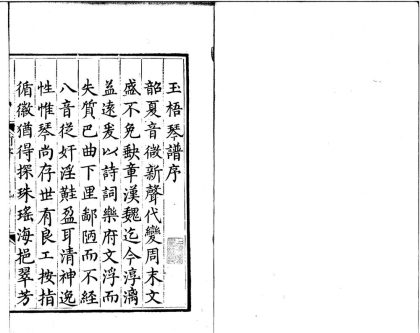 玉梧琴譜序
韶夏音微新聲代變周末文
盛不免斁章漢魏迄今淳漓
益遠爰以詩詞樂府文浮而
失質巴曲下里鄙陋而不經
八音從奸淫䵷盈耳清神逸
性惟琴尚存世有良工按指
循徽猶得探珠瑤海挹翠芳